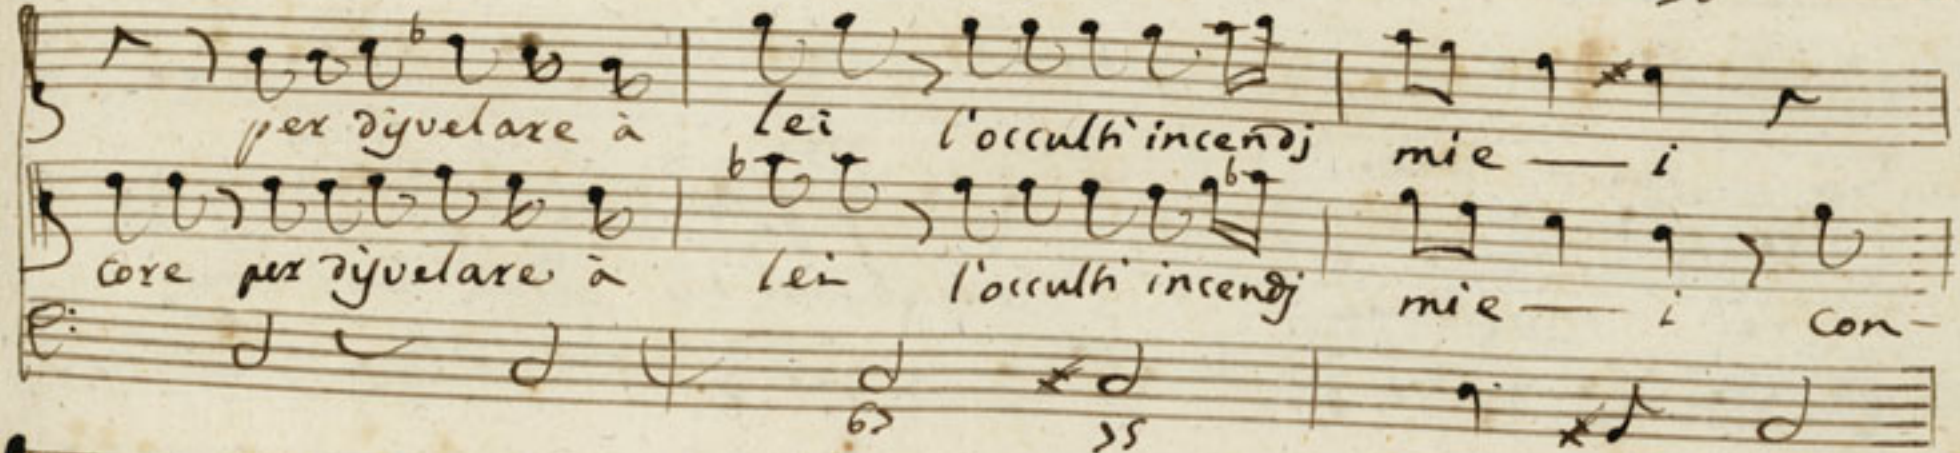 per disvelare à lei l'occulti incendj mie — i
core per disvelare à lei l'occulti incendj mie — i con-
6> >5